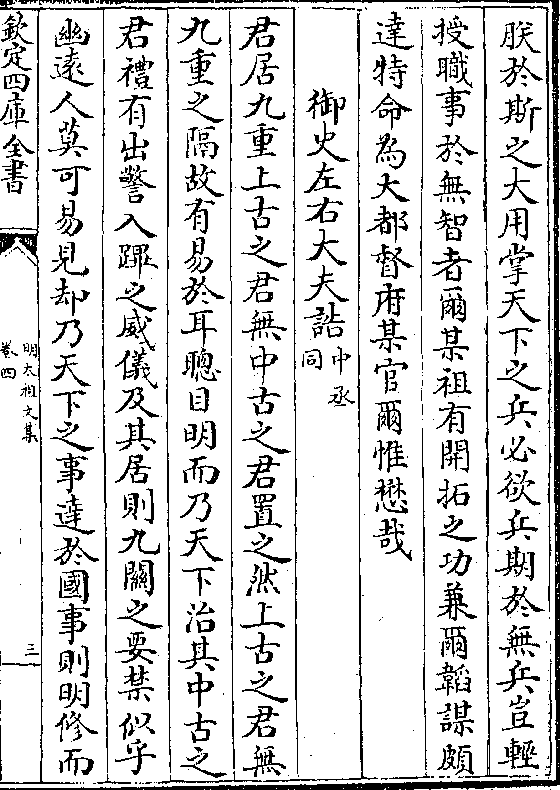 朕於斯之大用掌天下之兵必欲兵期於無兵豈輕
授職事於無智者爾某祖有開拓之功兼爾韜謀頗
達特命為大都督府某官爾惟懋哉
御史左右大夫誥中丞同
君居九重上古之君無中古之君置之然上古之君無
九重之隔故有易於耳聰目明而乃天下治其中古之
君禮有出警入蹕之威儀及其居則九關之要禁似乎
幽遠人莫可易見却乃天下之事達於國事則明修而
欽定四庫全書
明太祖文集
卷四
三